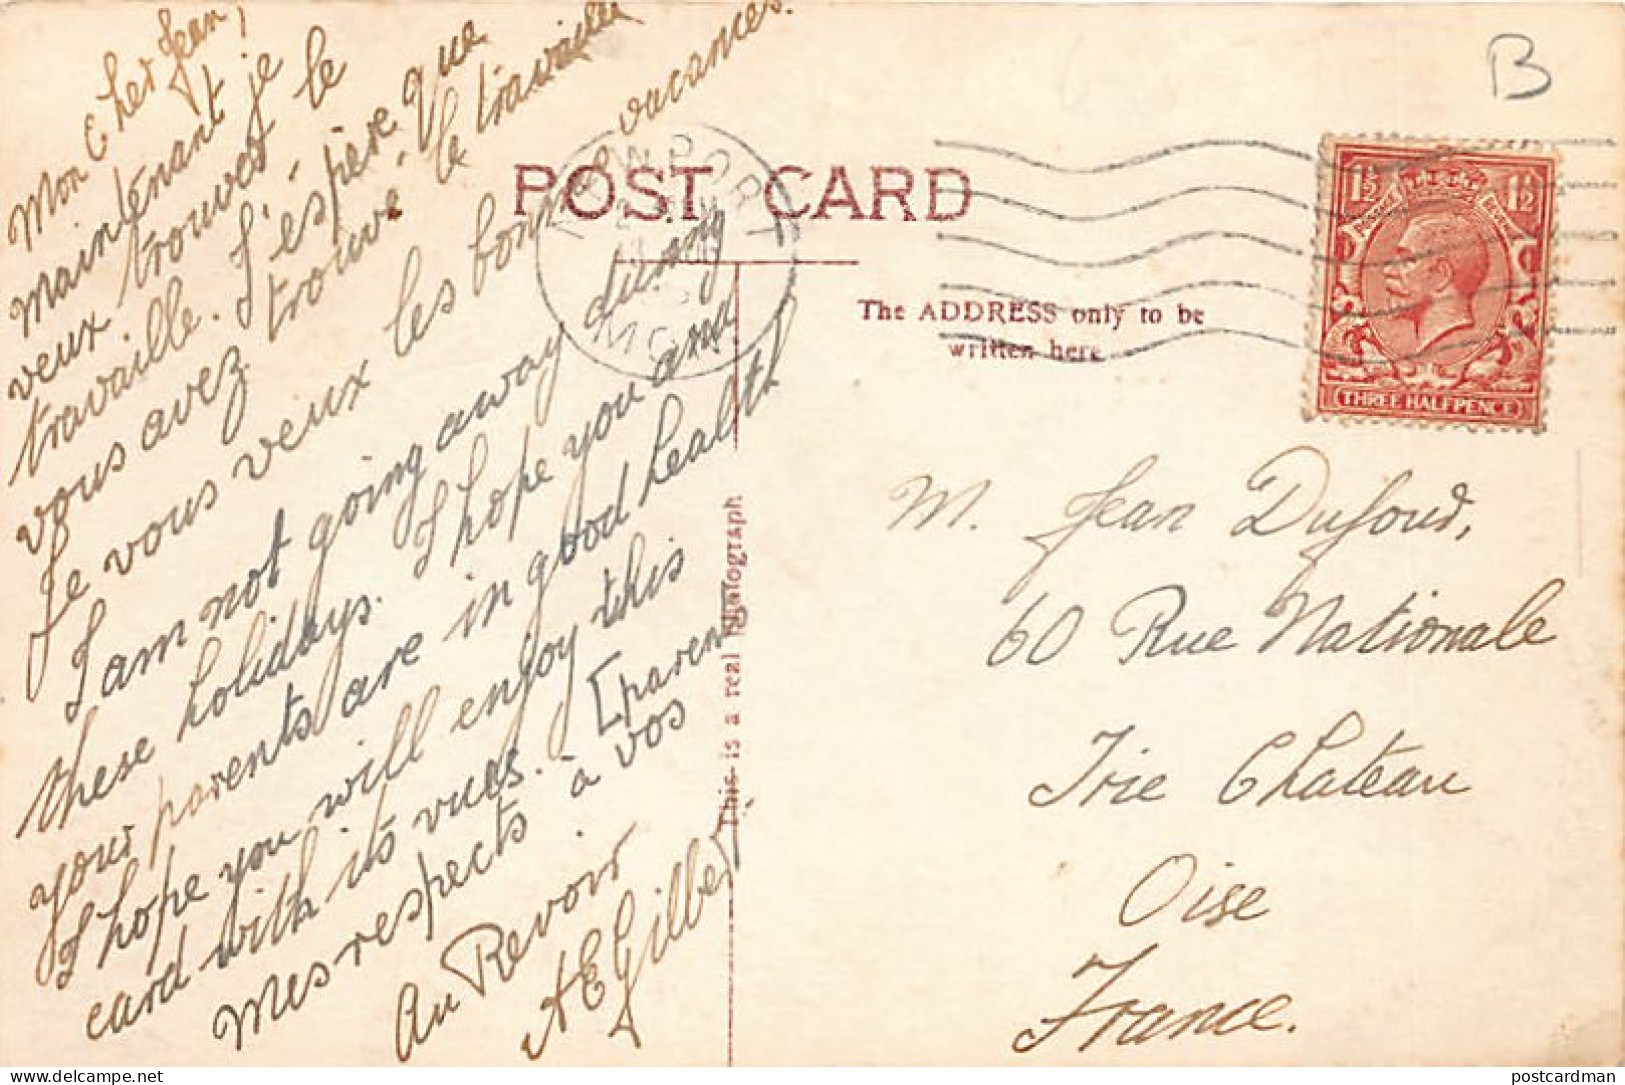 Mon Cher Jean,
maintenant je
veux trouver le
travaille. J'espère que
vous avez trouvé le travaille
Je vous veux les bonnes vacances.
I am not going away during
these holidays. I hope you and
your parents are in good health
I hope you will enjoy this
card with its vues.
Mes respects à vos
[parents
Au Revoir
A E Gilbert
POST CARD
The ADDRESS only to be
written here
This is a real Photograph
NEWPORT
MON
B
1½ 1½
THREE HALFPENCE
M. Jean Dufour,
60 Rue Nationale
Trie Chateau
Oise
France.
postcardman